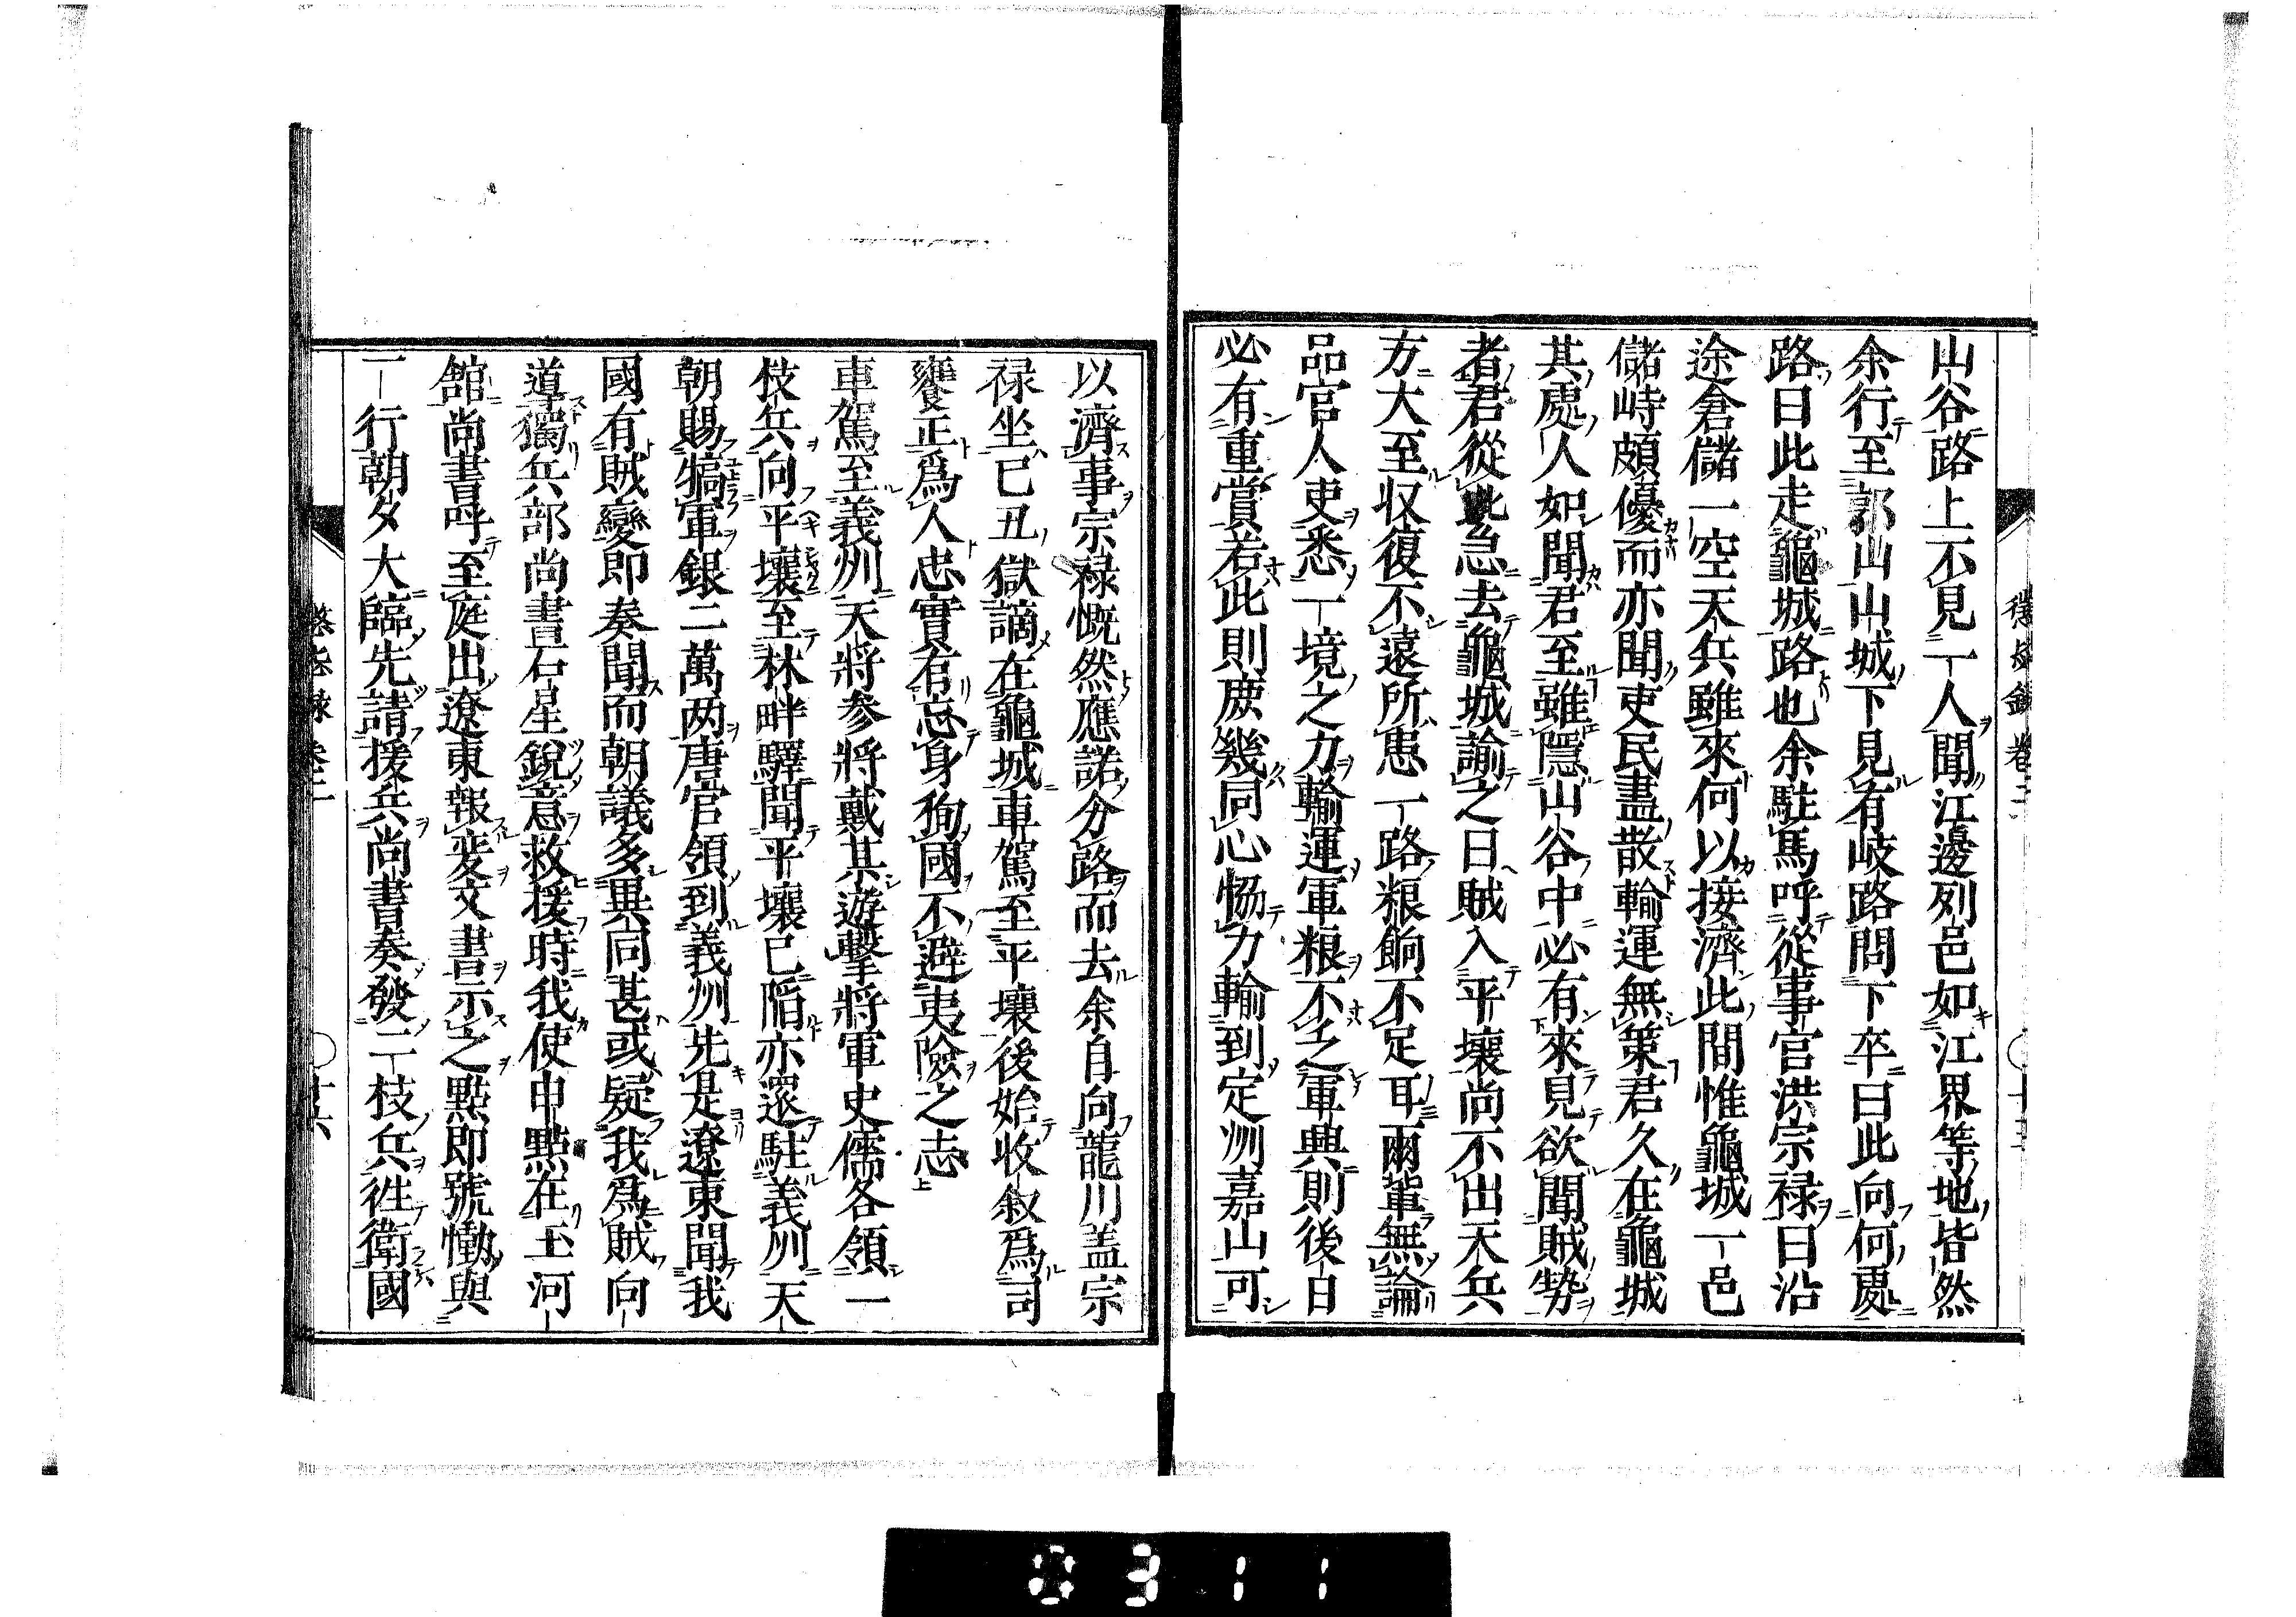 山谷路上不見一人聞江邊列邑如江界等地皆然
余行至郭山山城下見有岐路問下卒曰此向何處
路曰此走龜城路也余駐馬呼從事官洪宗禄曰沿
途倉儲一空天兵雖來何以接濟此間惟龜城一邑
儲峙頗優而亦聞吏民盡散輸運無策君久在龜城
其處人如聞君至雖隱山谷中必有來見欲聞賊勢
者君從此急去龜城諭之曰賊入平壤尚不出天兵
方大至収復不遠所患一路粮餉不足耳爾輩無論
品官人吏悉一境之力輸運軍粮不乏軍興則後日
必有重賞若此則庶幾同心恊力輸到定州嘉山可
以濟事宗禄慨然應諾分路而去余自向龍川盖宗
禄坐己丑獄謫在龜城車駕至平壤後始收叙爲司
饔正爲人忠實有忘身狥國不避夷險之志
車駕至義州天將參將戴某遊擊將軍史儒各領一
枝兵向平壤至林畔驛聞平壤已陷亦還駐義州天
朝賜犒軍銀二萬両唐官領到義州先是遼東聞我
國有賊變即奏聞而朝議多異同甚或疑我爲賊向
道獨兵部尚書石星銳意救援時我使申點在玉河
舘尚書呼至庭出遼東報変文書示之點即號慟與
一行朝夕大臨先請援兵尚書奏發二枝兵徃衛國